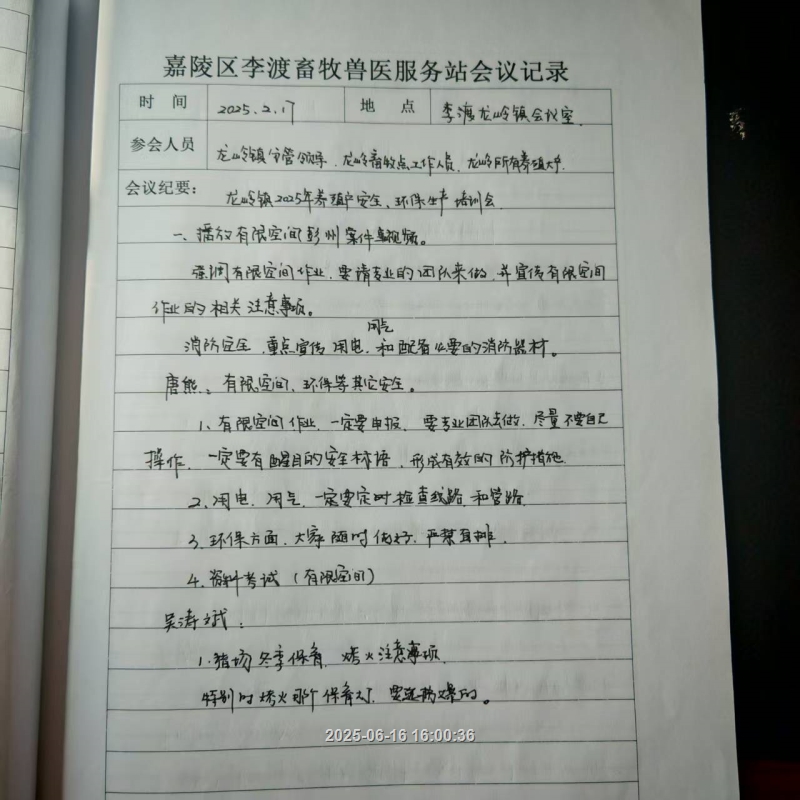 嘉陵区李渡畜牧兽医服务站会议记录
时 间 2025.2.17 地 点 李渡龙岭镇会议室.
参会人员 龙岭镇分管领导、龙岭畜牧点工作人员、龙岭所有养殖大户.
会议纪要: 龙岭镇2025年养殖户安全、环保生产培训会
一、播放有限空间彭州案件 视频。
强调有限空间作业,要请专业的团队来做,并宣传有限空间
作业的相关注意事项。
用气
消防安全,重点宣传用电,和配备必要的消防器材。
唐熊:有限空间、环保等其它安全。
1、有限空间作业,一定要申报,要专业团队去做,尽量不要自己
操作,一定要有醒目的安全标语,形成有效的防护措施.
2、用电、用气,一定要定时检查线路和管路
3、环保方面,大家随时 ,严禁直排.
4、资料考试(有限空间)
吴涛斌:
1.猪场冬季保育,烤火注意事项.
特别时烤火那个保育灯,要选防爆的。
2025-06-16 16:00:36